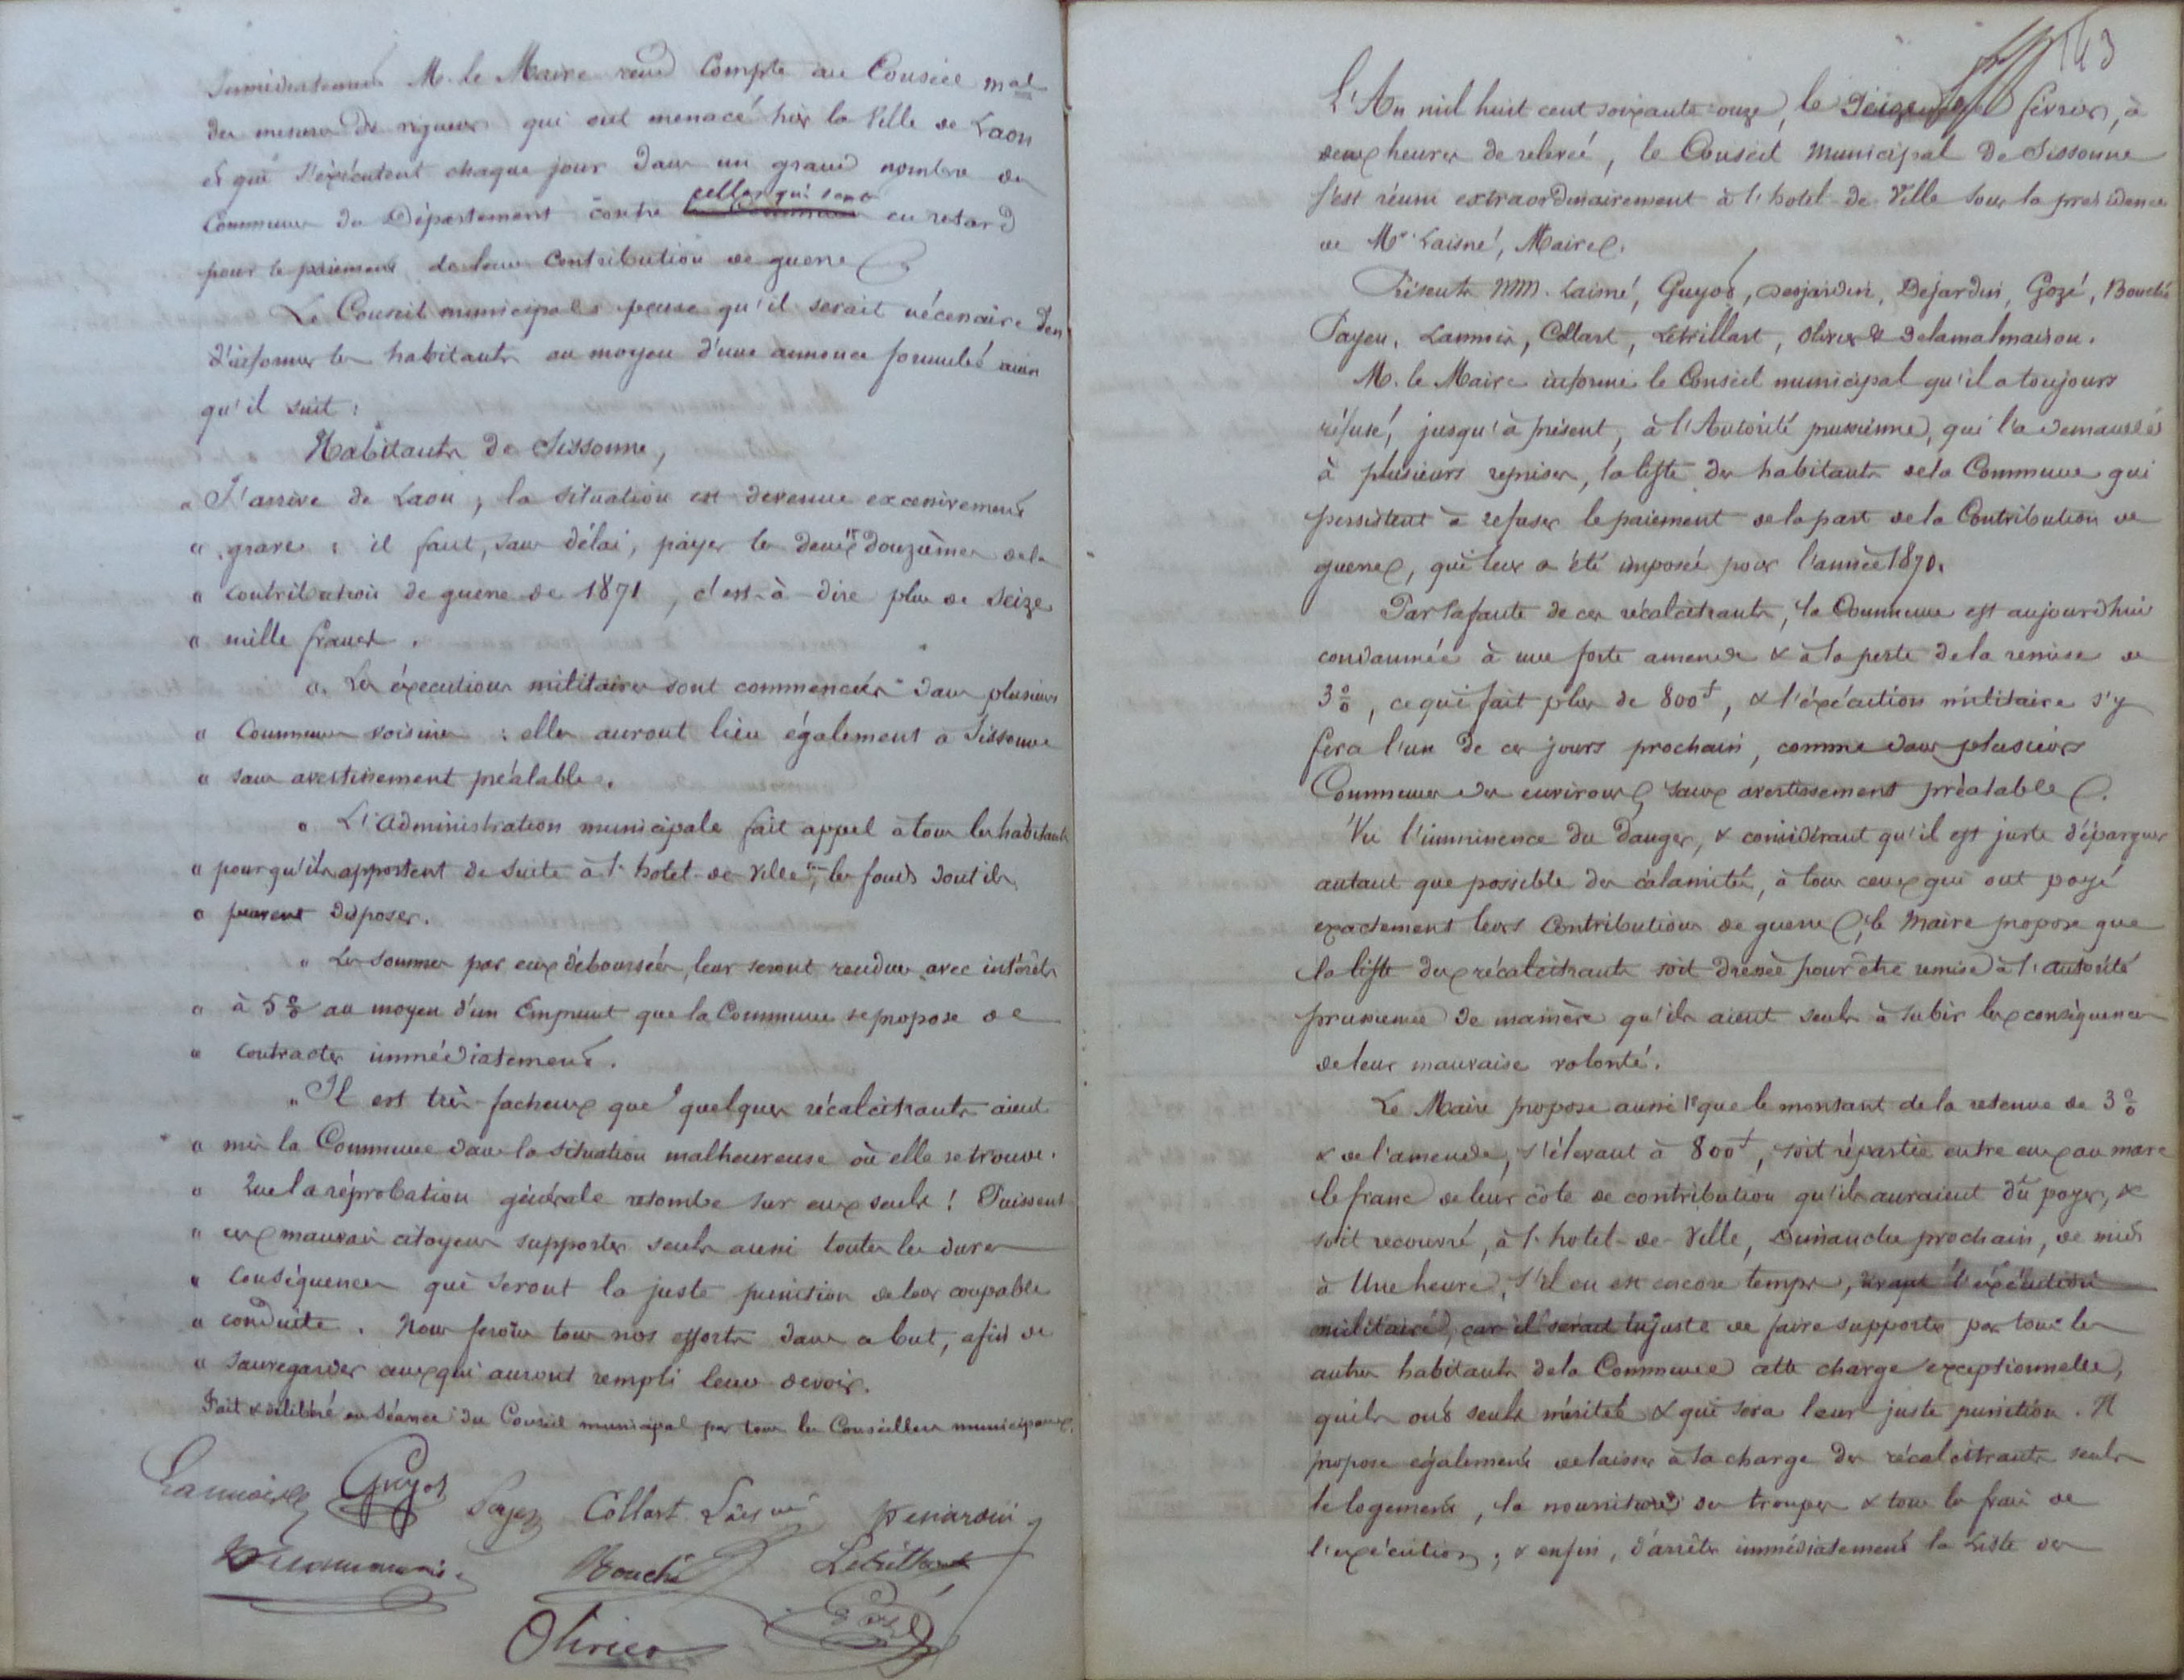 Immédiatement M. le Maire rend Compte au Conseil mal
des mesures de rigueur qui ont menacé hier la Ville de Laon
et qui s'exécutent chaque jour dans un grand nombre de
Communes du Département contre celles qui sont en retard
pour le paiement de leur Contribution de guerre
Le Conseil municipal pense qu'il serait nécessaire d'en
d'informer les habitants au moyen d'une annonce formulée ainsi
qu'il suit :
Habitants de Sissonne,
" J'arrive de Laon ; la situation est devenue excessivement
" grave : il faut, sans délai, payer les deux 1ers douzièmes de la
" contribution de guerre de 1871, c'est-à-dire plus de seize
" mille francs.
" Les éxecutions militaires sont commencées dans plusieurs
" Communes voisines : elles auront lieu également à Sissonne
" sans avertissement préalable.
" L'Administration municipale fait appel à tous les habitants
" pour qu'ils apportent de suite à l'hotel-de-Ville, les fonds dont ils
" peuvent disposer.
" Les sommes par eux déboursées, leur seront rendues avec intérêts
" à 5 % au moyen d'un Emprunt que la Commune se propose de
" contracter immédiatement.
" Il est très-facheux que quelques récalcitrants aient
" mis la Commune dans la situation malheureuse où elle se trouve.
" Que la réprobation générale retombe sur eux seuls ! Puissent
" ces mauvais citoyens supporter seuls aussi toutes les dures
" conséquences qui seront la juste punition de leur coupable
" conduite. Nous ferons tous nos efforts dans ce but, afin de
" sauvegarder ceux qui auront rempli leur devoir.
Fait & délibéré en séance du Conseil municipal par tous les Conseillers municipaux.
Guyot Payen Collart Laisné Dejardin
Bouché Letrillart
Olivier Gozé
143
L'An mil huit cent soixante-onze, le Seize février, à
deux heures de relevée, le Conseil Municipal de Sissonne
s'est réuni extraordinairement à l'hotel-de-Ville sous la présidence
de Mr Laisné, Maire.
Présents MM. Laisné, Guyot, Desjardin, Dejardin, Gozé, Bouché
Payen, Collart, Letrillart, Olivier & Delamalmaison.
M. le Maire informe le Conseil municipal qu'il a toujours
réfusé, jusqu'à présent, à l'Autorité prussienne, qui l'a demandée
à plusieurs reprises, la liste des habitants de la Commune qui
persistent à refuser le paiement de la part de la Contribution de
guerre, qui leur a été imposée pour l'année 1870.
Par la faute de ces récalcitrants, la Commune est aujourdhui
condamnée à une forte amende & à la perte de la remise de
3 %, ce qui fait plus de 800f, & l'éxécution militaire s'y
fera l'un de ces jours prochain, comme dans plusieurs
Communes des environs, sans avertissement préalable.
Vu l'imminence du danger, & considérant qu'il est juste d'épargner
autant que possible des calamités, à tous ceux qui ont payé
exactement leurs Contributions de guerre, le Maire propose que
la liste des récalcitrants soit dressée pour être remise à l'autorité
prussienne de manière qu'ils aient seuls à subir les conséquences
de leur mauvaise volonté.
Le Maire propose aussi 1° que le montant de la retenue de 3 %
& de l'amende, s'élevant à 800f, soit répartie entre eux au marc
le franc de leur côte de contribution qu'ils auraient dû payer, &
soit recouvré, à l'hotel-de-Ville, Dimanche prochain, de midi
à Une heure, s'il en est encore temps, avant l'éxécution
militaire, car il serait injuste de faire supporter par tous les
autres habitants de la Commune cette charge exceptionnelle,
qu'ils ont seuls méritée & qui sera leur juste punition. Il
propose également de laisser à la charge des récalcitrants seuls
le logement, la nourriture des troupes & tous les frais de
l'éxécution ; & enfin, d'arrêter immédiatement la Liste des